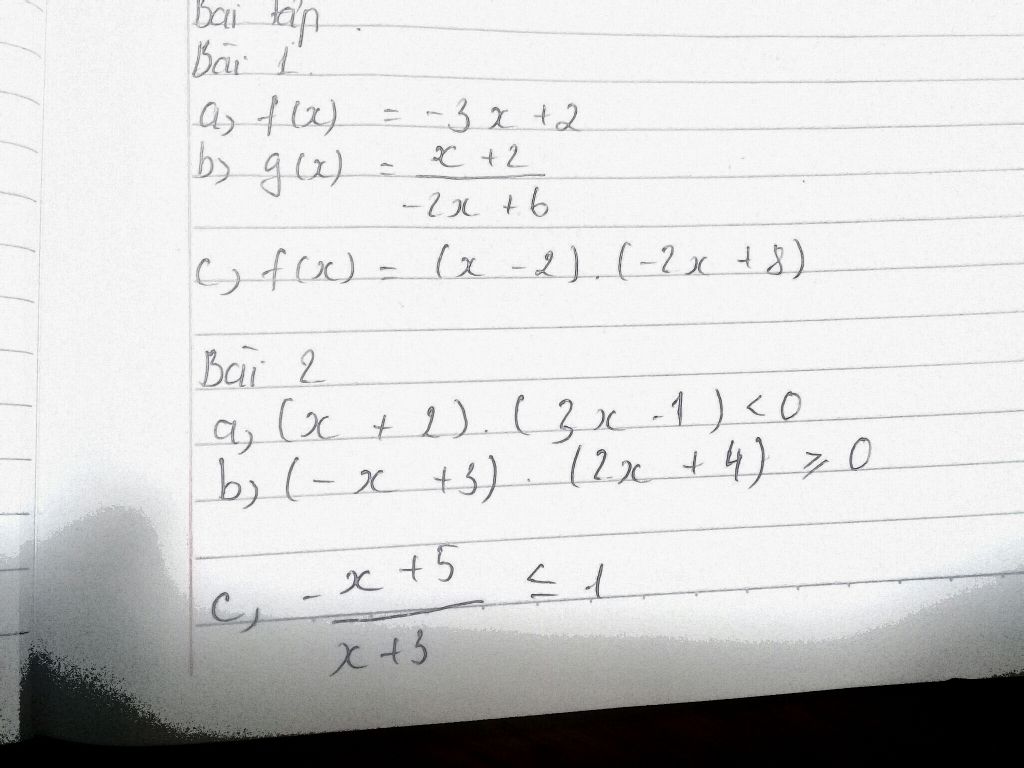 Bài tập.
Bài 1
a, f(x) = -3x +2
b, g(x) = x +2 / -2x +6
c, f(x) = (x -2).(-2x +8)
Bài 2
a, (x + 2).(3x -1) < 0
b, (-x +3).(2x +4) ≥ 0
c, - x +5 / x +3 ≤ 1